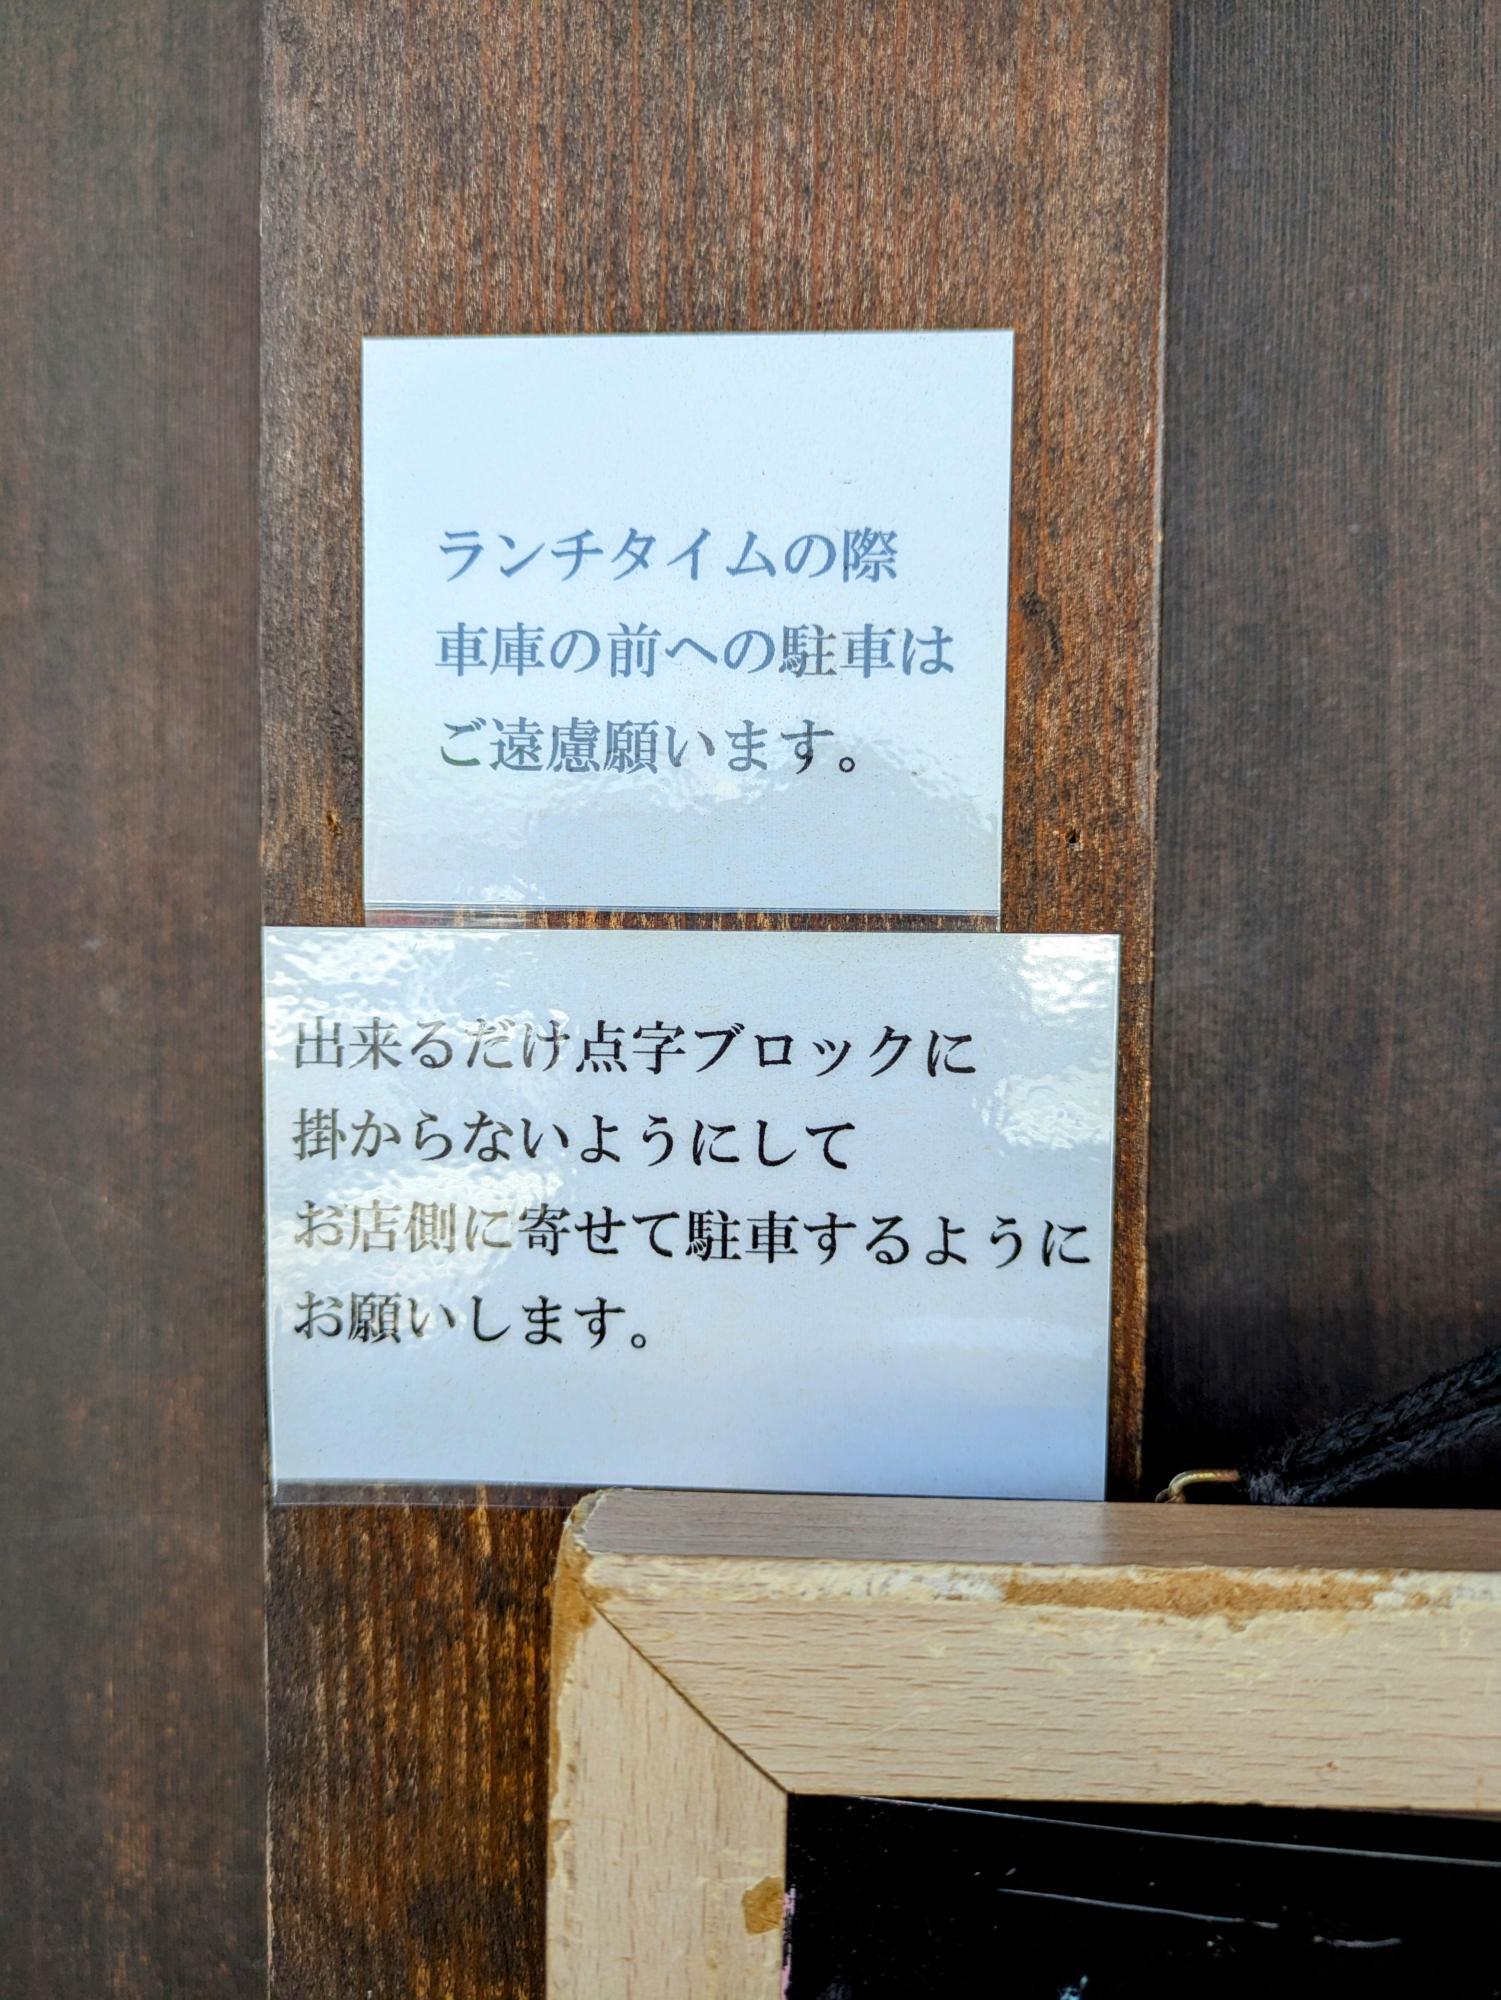 ランチタイムの際
車庫の前への駐車は
ご遠慮願います。
出来るだけ点字ブロックに
掛からないようにして
お店側に寄せて駐車するように
お願いします。